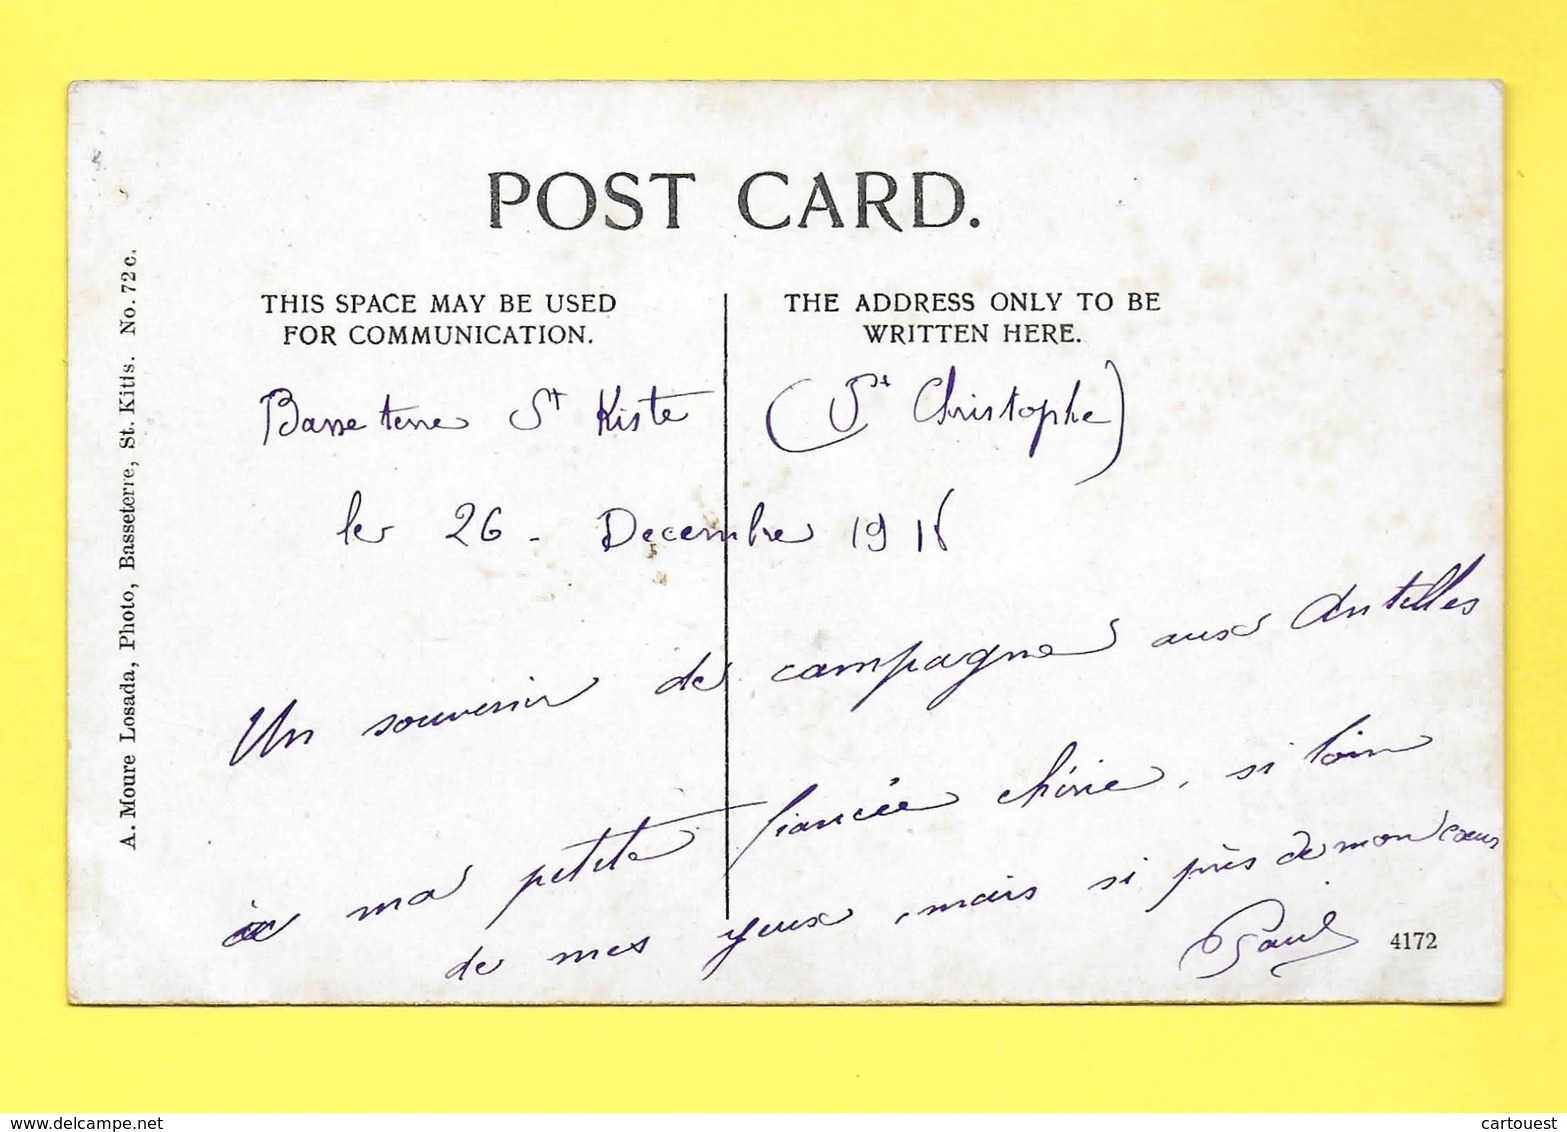 POST CARD.
THIS SPACE MAY BE USED
FOR COMMUNICATION.
THE ADDRESS ONLY TO BE
WRITTEN HERE.
Basse terre St Kiste (St Christophe)
le 26 - Decembre 191
Un souvenir de campagne aux Antilles
à ma petite fiancée chérie, si loin
de mes yeux, mais si près de mon coeur
Paul
4172
A. Moure Losada, Photo, Basseterre, St. Kitts. No. 72 c.
cartouest
www.delcampe.net